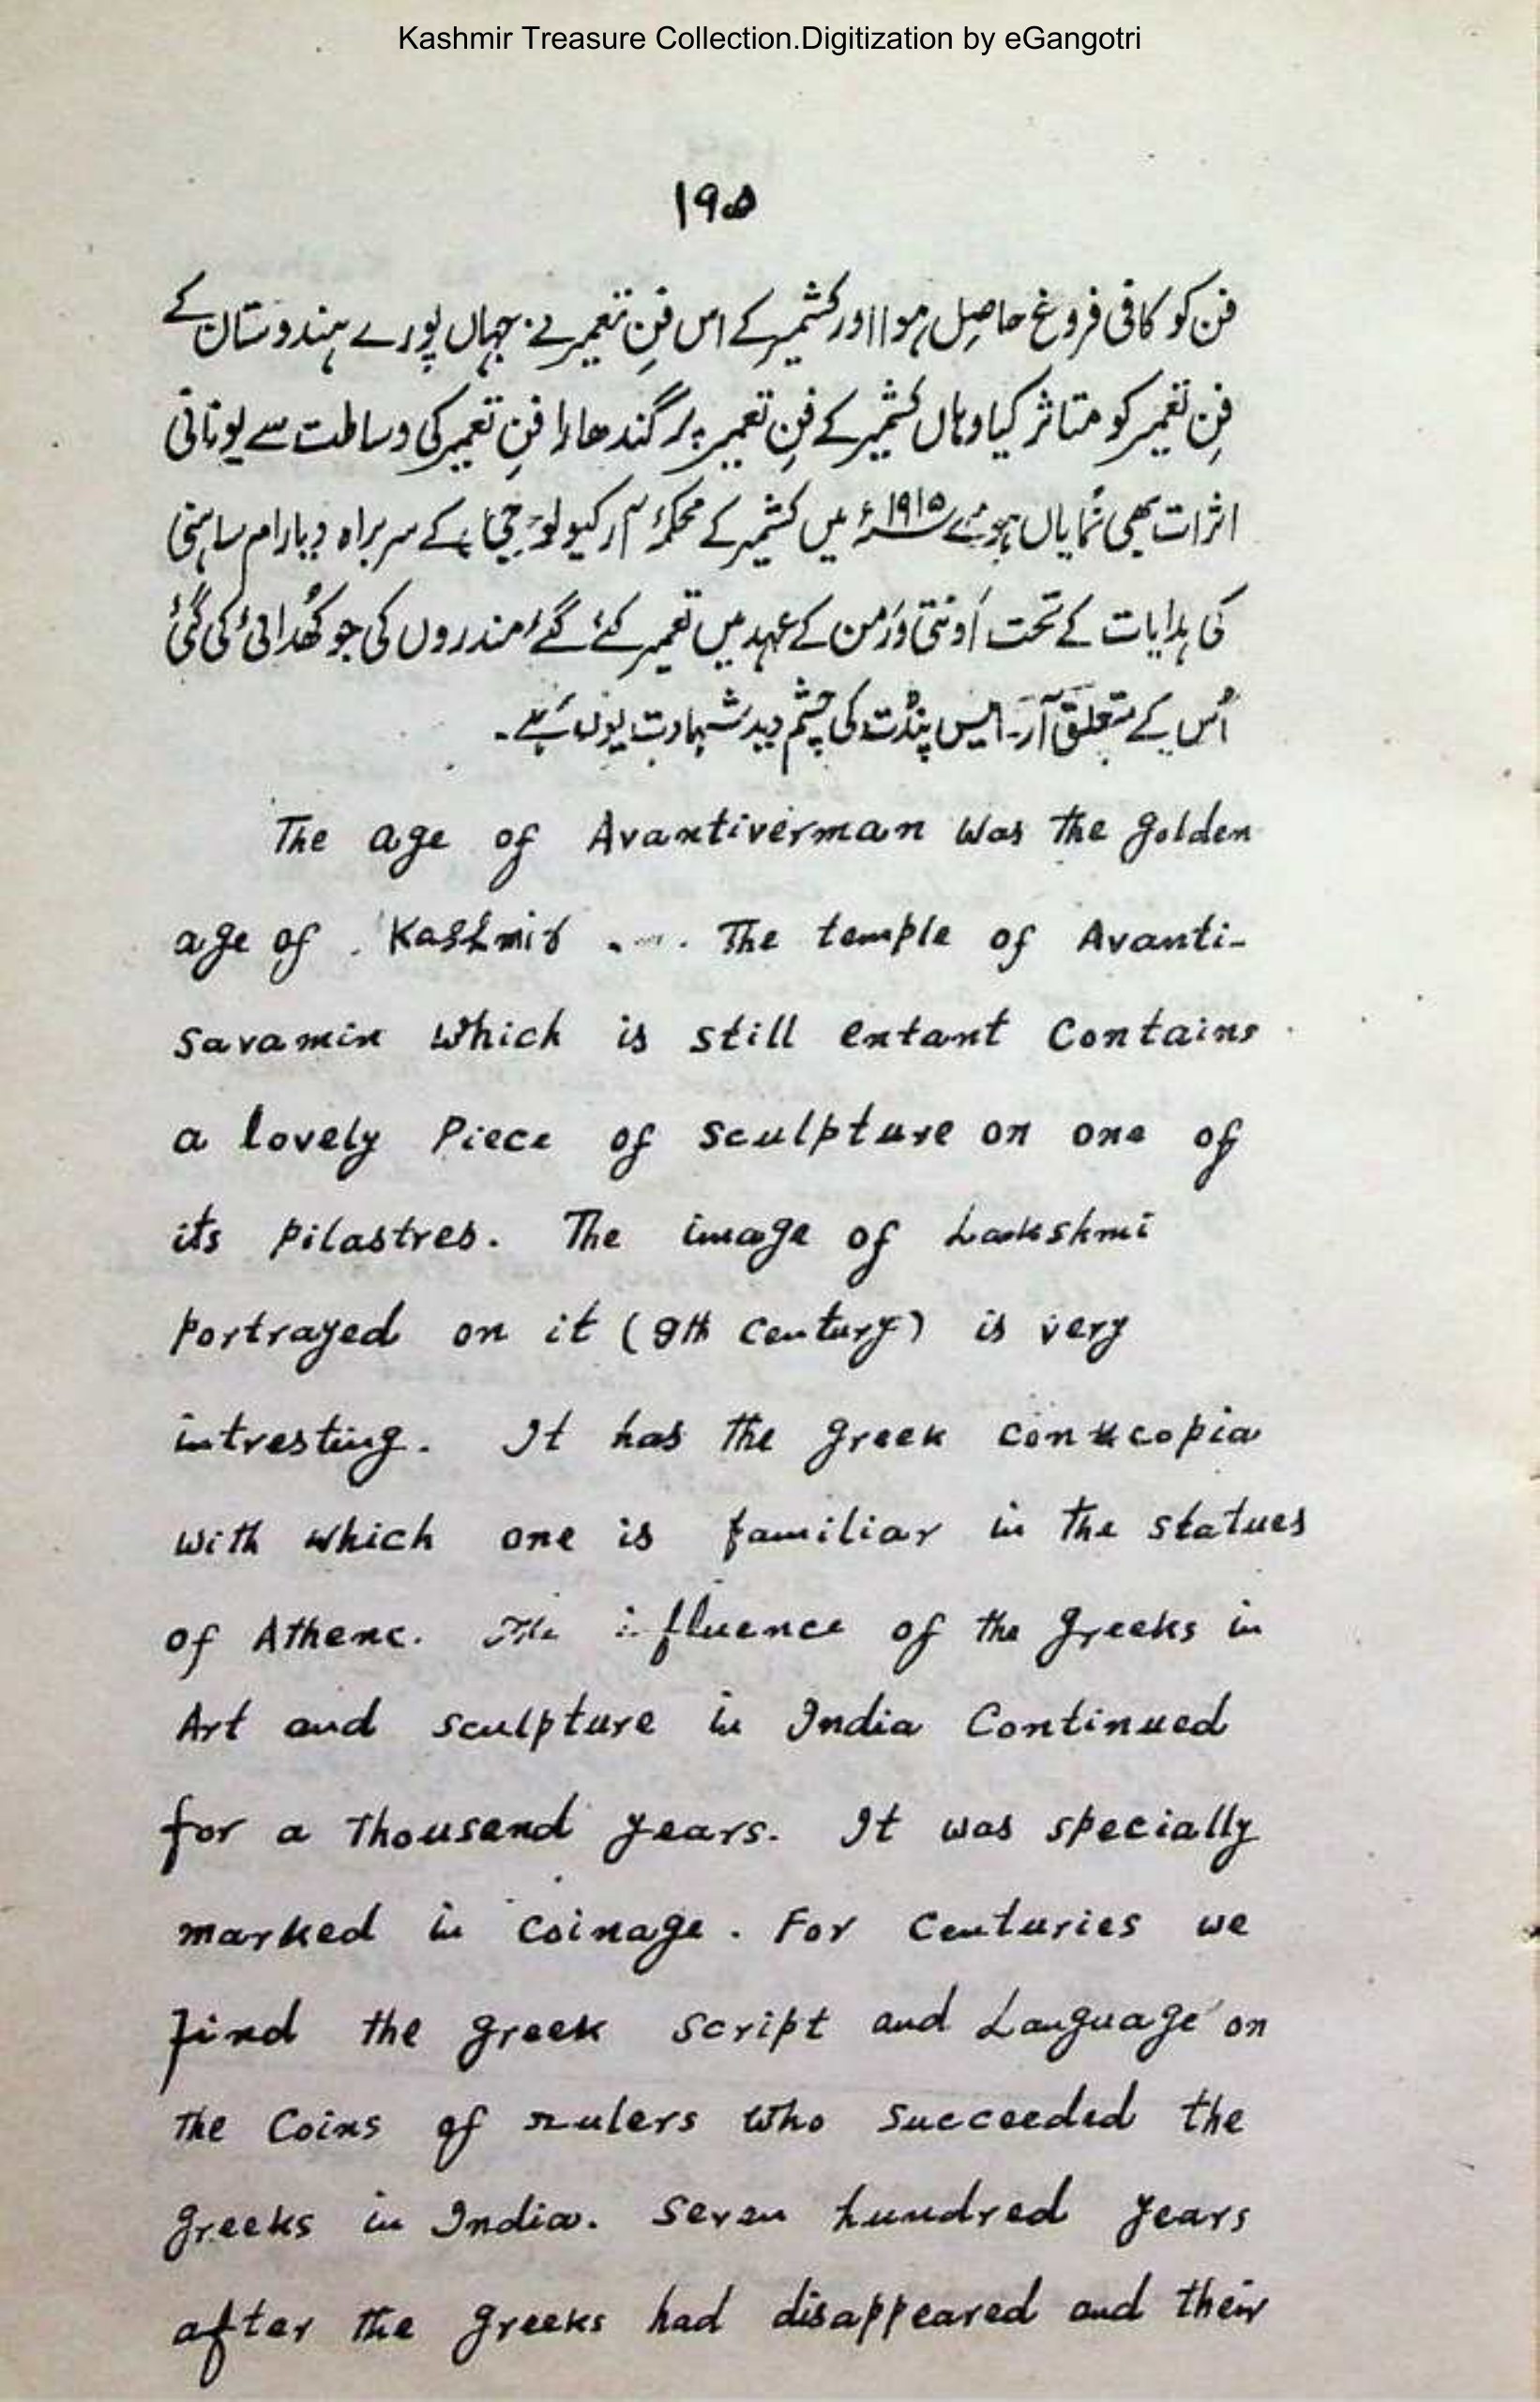 Kashmir Treasure Collection.Digitization by eGangotri
۱۹۵
فن کو کافی فروغ حاصِل ہوا اور کشمیر کے اس فنِ تعمیر نے جہاں پورے ہندوستان کے
فنِ تعمیر کو متاثر کیا وہاں کشمیر کے فنِ تعمیر پر گندھارا فنِ تعمیر کی وساطت سے یونانی
اثرات بھی نُمایاں ہوئے ۱۹۱۵ء میں کشمیر کے محکمۂ آرکیولوجی کے سربراہ دیارام ساہنی
کی ہدایات کے تحت اَونتی وَرمن کے عہد میں تعمیر کئے گئے مندروں کی جو کھُدائی کی گئی
اُس کے متعلق آر۔ ایس پنڈت کی چشم دید شہادت یوں ہے۔
The age of Avantiverman was the golden
age of Kashmir .... The temple of Avanti-
savamin which is still entant Contains
a lovely Piece of sculpture on one of
its pilastres. The image of Lakshmi
portrayed on it (9th Century) is very
intresting. It has the greek conucopia
with which one is familiar in the statues
of Athene. The influence of the greeks in
Art and sculpture in India Continued
for a thousend years. It was specially
marked in coinage. For Centuries we
find the greek script and Language on
the Coins of rulers who succeeded the
greeks in India. Seven hundred years
after the greeks had disappeared and their